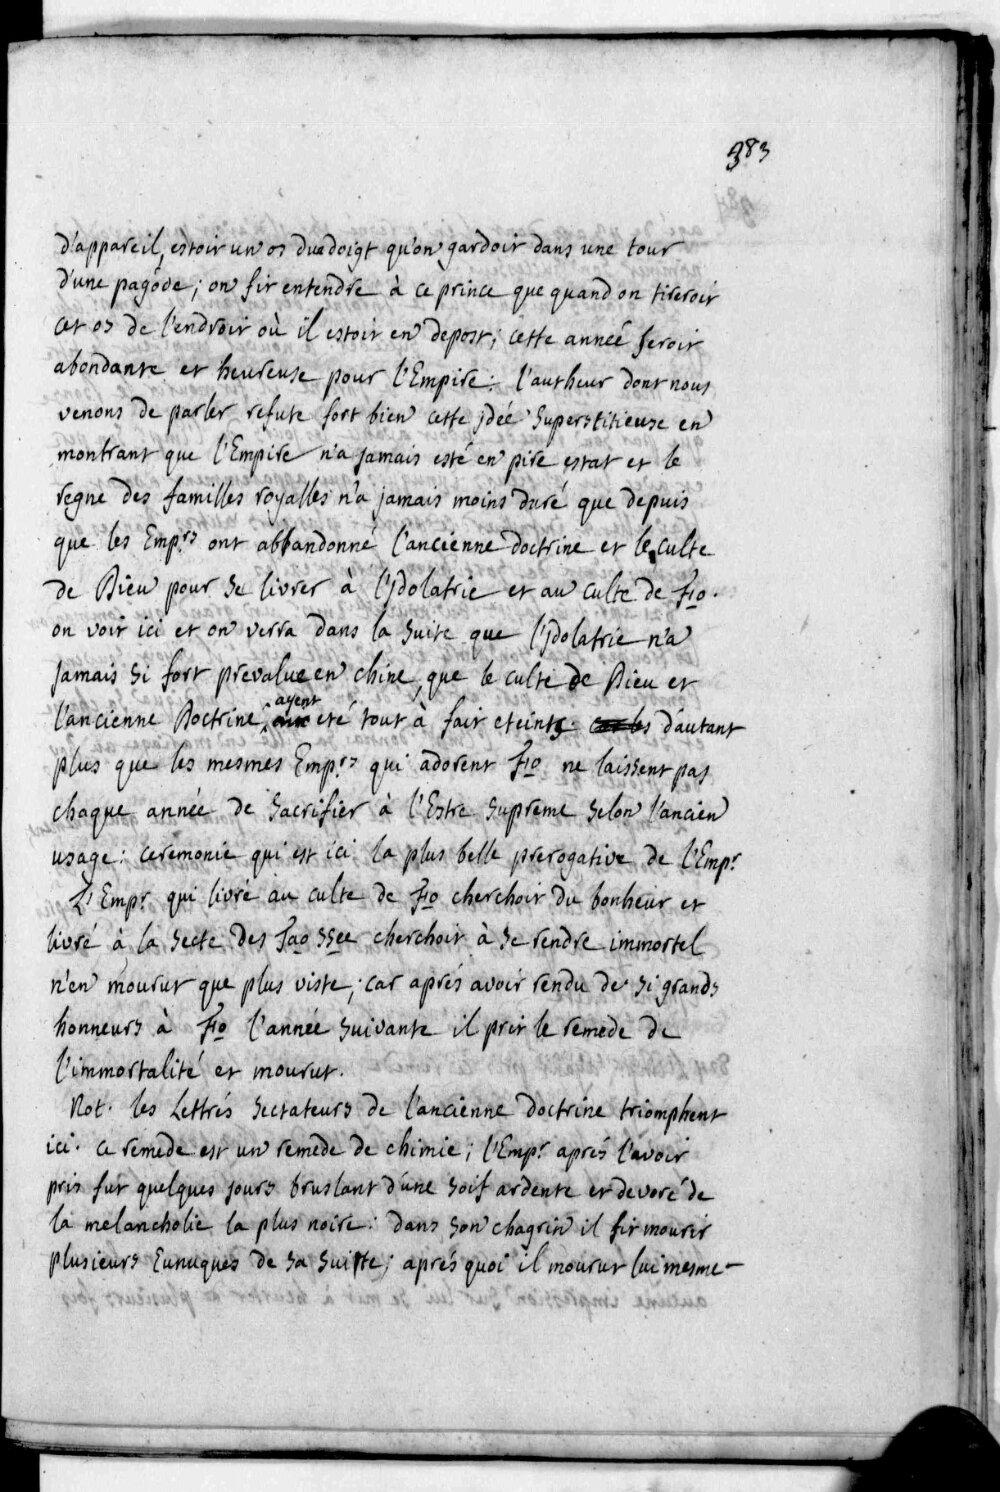 383
d'appareil, estoit un os du doigt qu'on gardoit dans une tour
d'une pagode; on fit entendre à ce prince que quand on tireroit
cet os de l'endroit où il estoit en depost; cette année seroit
abondante et heureuse pour l'Empire: l'autheur dont nous
venons de parler refute fort bien cette jdée superstitieuse en
montrant que l'Empire n'a jamais esté en pire estat et le
regne des familles royalles n'a jamais moins duré que depuis
que les Emp.rs ont abbandonné l'ancienne doctrine et le culte
de Dieu pour se livrer à l'jdolatrie et au culte de Fo.
on voit ici et on verra dans la suite que l'jdolatrie n'a
jamais si fort prevalue en chine, que le culte de Dieu et
l'ancienne Doctrine, ayent eté tout à fait eteints. d'autant
plus que les mesmes Emp.rs qui adorent Fo ne laissent pas
chaque année de sacrifier à l'Estre supreme selon l'ancien
usage: ceremonie qui est ici la plus belle prerogative de l'Emp.r
L'Emp.r qui livré au culte de Fo cherchoit du bonheur et
livré à la secte des Tao ssee cherchoit à se rendre immortel
n'en mourut que plus viste; car aprés avoir rendu de si grands
honneurs à Fo l'année suivante il prit le remede de
l'immortalité et mourut.
Not. les Lettrés sectateurs de l'ancienne doctrine triomphent
ici. ce remede est un remede de chimie; l'Emp.r aprés l'avoir
pris fut quelques jours bruslant d'une soif ardente et devoré de
la melancholie la plus noire: dans son chagrin il fit mourir
plusieurs Eunuques de sa suitte; aprés quoi il mourut lui mesme-